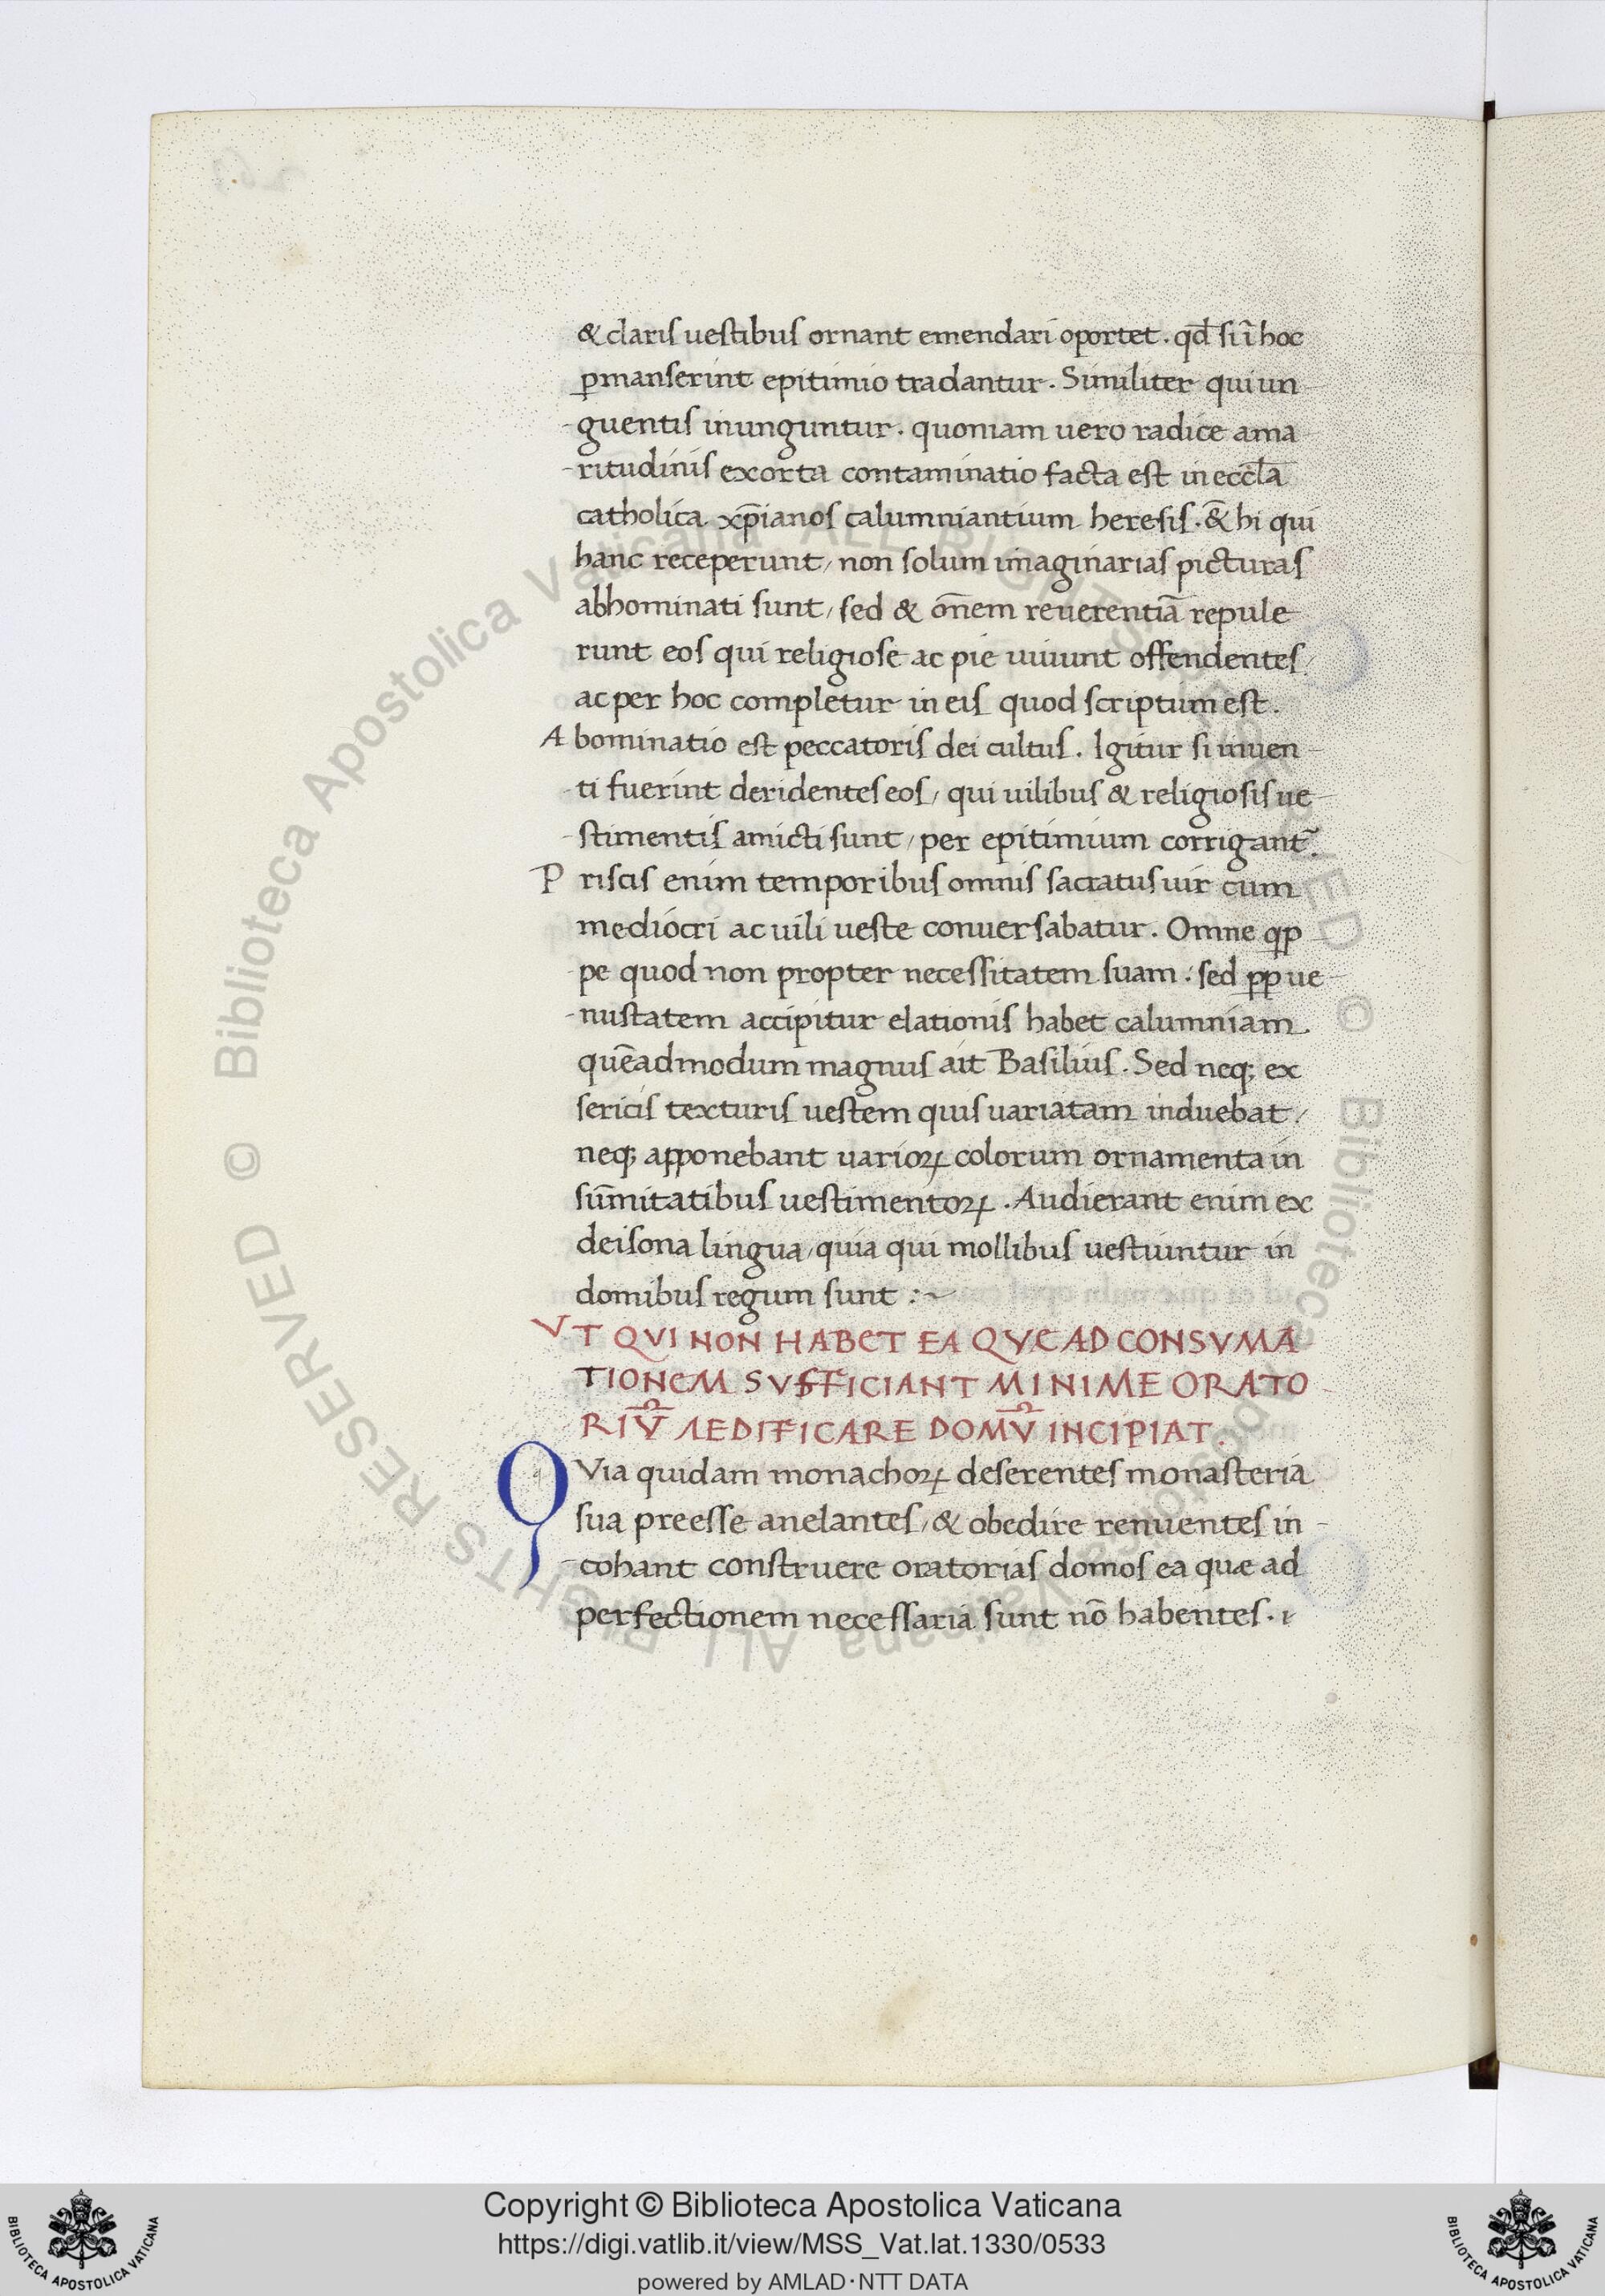 & claris uestibus ornant emendari oportet. qd̄ si ī hoc
ꝑmanserint epitimio tradantur. Similiter qui un-
guentis inunguntur. quoniam uero radice ama-
-ritudinis exorta contaminatio facta est in eccl̄a
catholica xp̄ianos calumniantium heresis. & hi qui
hanc receperunt, non solum imaginarias picturas
abhominati sunt, sed & om̄em reuerentiā repule
runt eos qui religiose ac pie uiuunt offendentes,
ac per hoc completur in eis quod scriptum est.
Abominatio est peccatoris dei cultus. Igitur si inuen-
-ti fuerint deridentes eos, qui uilibus & religiosis ue-
-stimentis amicti sunt, per epitimium corrigant᷑.
Priscis enim temporibus omnis sacratus uir cum
mediocri ac uili ueste conuersabatur. Omne qp-
pe quod non propter necessitatem suam: sed pp ue-
-nustatem accipitur elationis habet calumniam
quēadmodum magnus ait Basilius. Sed neq; ex
sericis texturis uestem quis uariatam induebat,
neq; apponebant uarioꝝ colorum ornamenta in
sūmitatibus uestimentoꝝ. Audierant enim ex
deisona lingua, quia qui mollibus uestiuntur in
domibus regum sunt :~
VT QVI NON HABET EA QVÆ AD CONSVMA
TIONEM SVFFICIANT MINIME ORATO-
RIV̄ AEDIFICARE DOMV̄ INCIPIAT.
QVia quidam monachoꝝ deserentes monasteria
sua preesse anelantes, & obedire renuentes in-
-cohant construere oratorias domos ea quæ ad
perfectionem necessaria sunt nō habentes. i
© Biblioteca Apostolica Vaticana ALL RIGHTS RESERVED © Biblioteca Apostolica Vaticana ALL RIGHTS RESERVED
Copyright © Biblioteca Apostolica Vaticana
https://digi.vatlib.it/view/MSS_Vat.lat.1330/0533
powered by AMLAD·NTT DATA
BIBLIOTECA APOSTOLICA VATICANA
BIBLIOTECA APOSTOLICA VATICANA